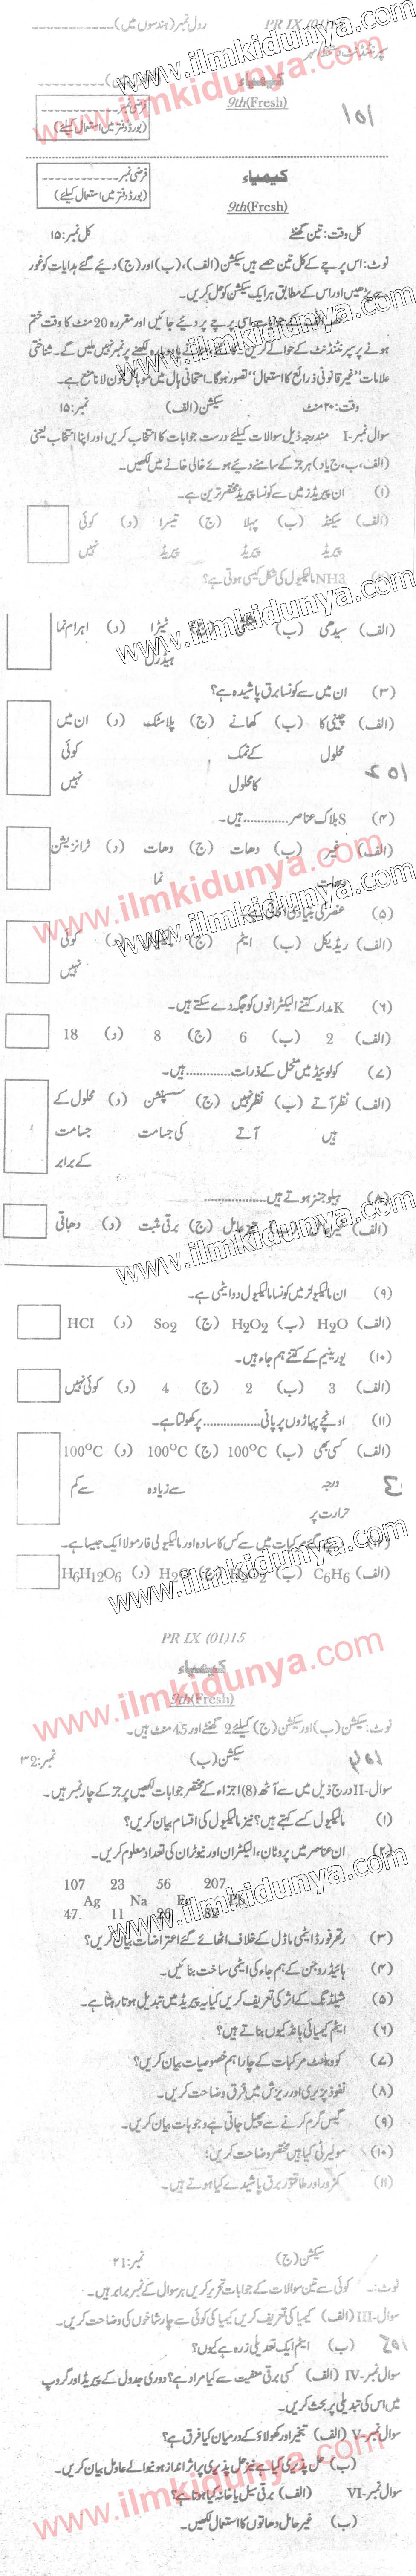 رول نمبر (ہندسوں میں) PR IX (01)
کیمیاء
9th(Fresh)
فرضی نمبر
(بورڈ دفتر میں استعمال کیلئے)
کیمیاء
9th(Fresh)
فرضی نمبر
(بورڈ دفتر میں استعمال کیلئے)
کل وقت: تین گھنٹے کل نمبر: ۱۵
نوٹ: اس پرچے کے کل تین حصے ہیں سیکشن (الف)، (ب) اور (ج) دیئے گئے ہدایات کو غور
سے پڑھیں اور اس کے مطابق ہر ایک سیکشن کو حل کریں۔
کے جوابات اسی پرچے پر دیئے جائیں اور مقررہ 20 منٹ کا وقت ختم
ہونے پر سپرنٹنڈنٹ کے حوالے کریں۔ دوبارہ لکھنے پر نمبر نہیں ملیں گے۔ شناختی
علامات "غیر قانونی ذرائع کا استعمال" تصور ہوگا۔ امتحانی ہال میں موبائل فون لانا منع ہے۔
وقت: ۲۰ منٹ سیکشن (الف) نمبر: ۱۵
سوال نمبر-I مندرجہ ذیل سوالات کیلئے درست جوابات کا انتخاب کریں اور اپنا انتخاب یعنی
(الف، ب، ج یا د) ہر جز کے سامنے دیئے ہوئے خالی خانے میں لکھیں۔
(۱) ان پیریڈز میں سے کونسا پیریڈ مختصر ترین ہے۔
(الف) سیکنڈ (ب) پہلا (ج) تیسرا (د) کوئی
پیریڈ پیریڈ پیریڈ نہیں
NH3 مالیکیول کی شکل کیسی ہوتی ہے؟
(الف) سیدھی (ب) (ج) ٹیٹرا (د) اہرام نما
ہیڈرل
(۳) ان میں سے کونسا برق پاشیدہ ہے؟
(الف) چینی کا (ب) کھانے (ج) پلاسٹک (د) ان میں
محلول کے نمک کوئی
کا محلول نہیں
(۴) S بلاک عناصر ............ ہیں۔
(الف) غیر (ب) دھات (ج) دھات (د) ٹرانزیشن
دھات نما
(۵) عنصر کی بنیادی
(الف) ریڈیکل (ب) ایٹم (ج) (د) کوئی
نہیں
(۶) K مدار کتنے الیکٹرانوں کو جگہ دے سکتے ہیں۔
(الف) 2 (ب) 6 (ج) 8 (د) 18
(۷) کولوئیڈ میں منحل کے ذرات ............ ہیں۔
(الف) نظر آتے (ب) نظر نہیں (ج) سسپنشن (د) محلول کے
ہیں آتے کی جسامت جسامت
کے برابر
(۸) ہیلوجنز ہوتے ہیں ................
(الف) (ب) تیز عامل (ج) برقی مثبت (د) دھاتی
(۹) ان مالیکولز میں کونسا مالیکیول دو ایٹمی ہے۔
(الف) H2O (ب) H2O2 (ج) So2 (د) HCI
(۱۰) یورینیم کے کتنے ہم جاء ہیں۔
(الف) 3 (ب) 2 (ج) 4 (د) کوئی نہیں
(۱۱) اونچے پہاڑوں پر پانی ............ پر کھولتا ہے۔
(الف) کسی بھی (ب) 100°C (ج) 100°C (د) 100°C
درجہ سے زیادہ سے کم
حرارت پر
مرکبات میں سے کس کا سادہ اور مالیکیولی فارمولا ایک جیسا ہے۔
(الف) C6H6 (ب) H2O2 (ج) H2O (د) H6H12O6
PR IX (01)15
کیمیاء
9th(Fresh)
نوٹ: سیکشن (ب) اور سیکشن (ج) کیلئے 2 گھنٹے اور 45 منٹ ہیں۔
سیکشن (ب) نمبر: 32
سوال-II درج ذیل میں سے آٹھ (8) اجزاء کے مختصر جوابات لکھیں ہر جز کے چار نمبر ہیں۔
(۱) مالیکیول کسے کہتے ہیں؟ نیز مالیکیول کی اقسام بیان کریں؟
(۲) ان عناصر میں پروٹان، الیکٹران اور نیوٹران کی تعداد معلوم کریں۔
107 23 56 207
Ag Na Fe Pb
47 11 26 82
(۳) رتھر فورڈ ایٹمی ماڈل کے خلاف اٹھائے گئے اعتراضات بیان کریں؟
(۴) ہائیڈروجن کے ہم جاء کی ایٹمی ساخت بنائیں۔
(۵) شیلڈنگ کے اثر کی تعریف کریں کیا یہ پیریڈ میں تبدیل ہوتا رہتا ہے۔
(۶) ایٹم کیمیائی بانڈ کیوں بناتے ہیں؟
(۷) کوویلنٹ مرکبات کے چار اہم خصوصیات بیان کریں؟
(۸) نفوذ پذیری اور ریزش میں فرق وضاحت کریں۔
(۹) گیس گرم کرنے سے پھیل جاتی ہے وجوہات بیان کریں۔
(۱۰) مولیرٹی کیا ہیں مختصر وضاحت کریں؛
(۱۱) کمزور اور طاقتور برق پاشیدے کیا ہوتے ہیں۔
سیکشن (ج) نمبر: ۲1
نوٹ:۔ کوئی سے تین سوالات کے جوابات تحریر کریں ہر سوال کے نمبر برابر ہیں۔
سوال-III (الف) کیمیا کی تعریف کریں کیمیا کی کوئی سے چار شاخوں کی وضاحت کریں۔
(ب) ایٹم ایک تعدیلی ذرہ ہے کیوں؟
سوال نمبر-IV (الف) کسی برقی منفیت سے کیا مراد ہے؟ دوری جدول کے پیریڈ اور گروپ
میں اس کی تبدیلی پر بحث کریں۔
سوال نمبر-V (الف) تبخیر اور کھولاؤ کے درمیان کیا فرق ہے؟
(ب) حل پذیری کیا ہے نیز حل پذیری پر اثر انداز ہونیوالے عوامل بیان کریں۔
سوال نمبر-VI (الف) برقی سیل یا خانہ کیا ہوتا ہے؟
(ب) غیر حامل دھاتوں کا استعمال لکھیں۔
www.ilmkidunya.com